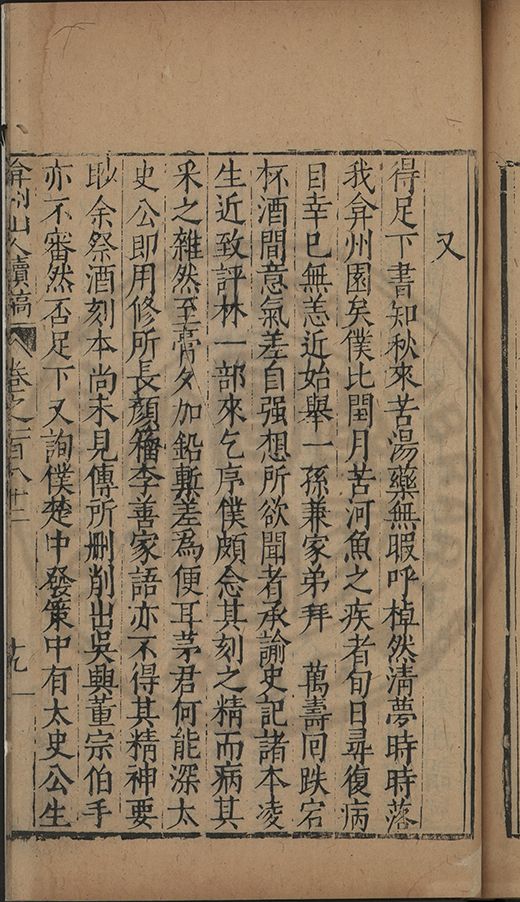 又
得足下書知秋來苦湯藥無暇呼棹然清夢時時落
我弇州園矣僕比閏月苦河魚之疾者旬日尋復病
目幸已無恙近始舉一孫兼家弟拜　萬壽同跌宕
杯酒間意氣差自强想所欲聞者承諭史記諸本凌
生近致評林一部來乞序僕頗念其刻之精而病其
采之雜然至膏夕加鉛槧差為便耳茅君何能深太
史公即用修所長顏籀李善家語亦不得其精神要
眇余祭酒刻本尚未見傳所刪削出吳興董宗伯手
亦不審然否足下又詢僕楚中發策中有太史公生
弇州山人續稿 卷之一百八十二 十九